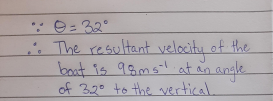 ∵ θ = 32°
∴ The resultant velocity of the
boat is 98ms⁻¹ at an angle
of 32° to the vertical.